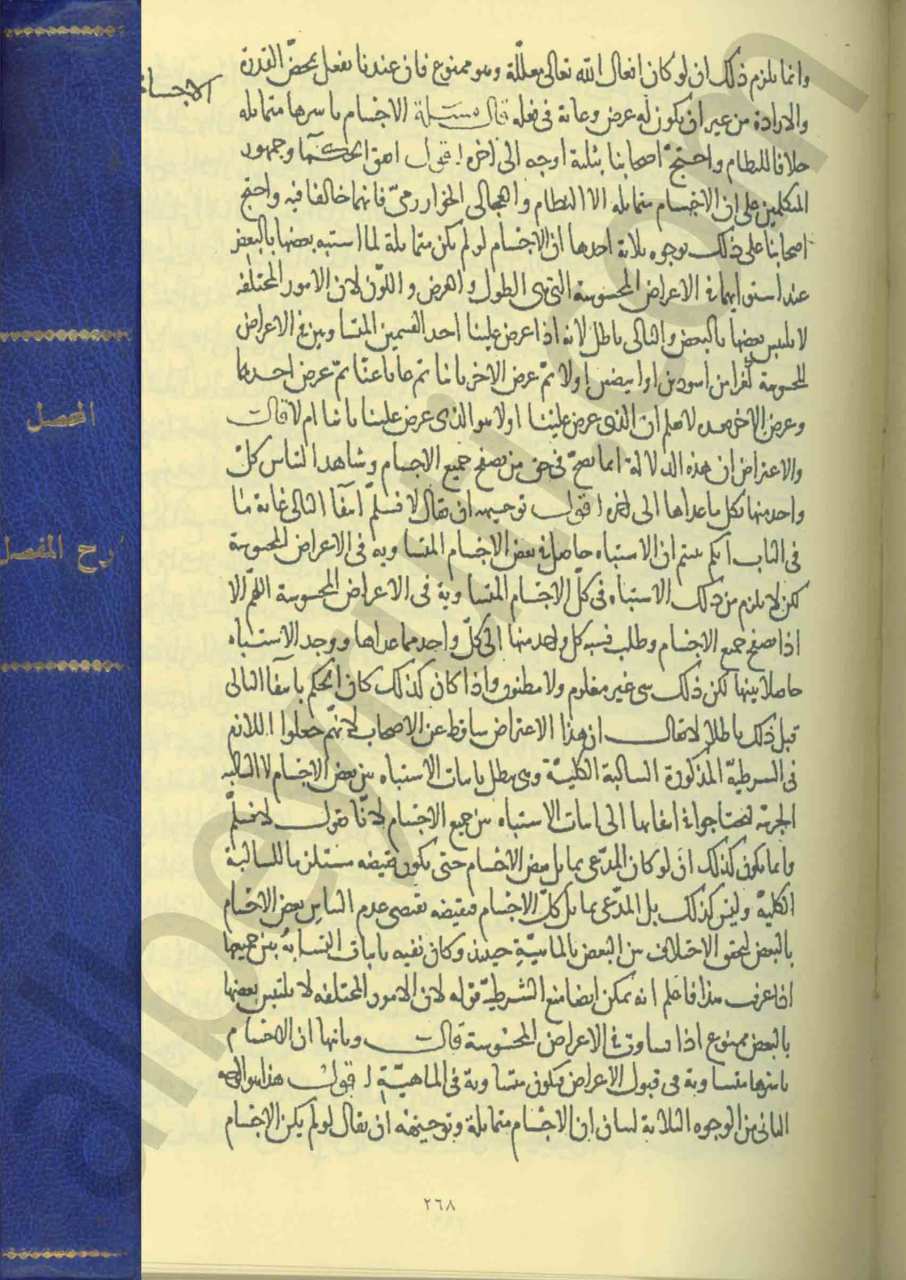 المحصل
شرح المفصل
الاجسام
وانما يلزم ذلك ان لو كان افعال الله تعالى معللة وهو ممنوع فان عندنا يفعل بمحض القدرة
والارادة من غير ان يكون له غرض وغاية في فعله قال مسئلة الاجسام باسرها متماثلة
خلافا للنظام واحتج اصحابنا بثلثة اوجه الى اخره اقول اتفق الحكما وجمهور
المتكلمين على ان الاجسام متماثلة الا النظام و فانهما خالفا فيه واحتج
اصحابنا على ذلك بوجوه ثلاثة احدها ان الاجسام لو لم تكن متماثلة لما اشتبه بعضها بالبعض
عند استوايها في الاعراض المحسوسة التي هي الطول والعرض واللون لان الامور المختلفة
لا يلتبس بعضها بالبعض والتالي باطل لانه اذا عرض علينا احد القسمين المتساويين في الاعراض
المحسوسة اسودين او ابيضين اولا ثم عرض الاخر ثانيا ثم غابا عنا ثم عرض احدهما
وعرض الاخر بعده لا نعلم ان الذي عرض علينا اولا هو الذي عرض علينا ثانيا ام لا قال
والاعتراض ان هذه الدلالة انما تصح في حق من تصفح جميع الاجسام وشاهد التباس كل
واحد منها بكل ما عداها الى اخره اقول توجيهه ان يقال لا نسلم انتفا التالي غاية ما
في الباب انكم بينتم ان الاشتباه حاصل في بعض الاجسام المتساوية في الاعراض المحسوسة
لكن لا يلزم من ذلك الاشتباه في كل الاجسام المتساوية في الاعراض المحسوسة اللهم الا
اذا تصفح جميع الاجسام وطلب نسبة كل واحد منها الى كل واحد مما عداها ووجد الاشتباه
حاصلا بينها لكن ذلك شي غير معلوم ولا مظنون واذا كان كذلك كان الحكم بانتفا التالي
قبل ذلك باطلا لا يقال ان هذا الاعتراض ساقط عن الاصحاب لانهم جعلوا اللازم
في الشرطية المذكورة السالبة الكلية وهي تبطل باثبات الاشتباه بين بعض الاجسام لا السالبة
الجزئية ليحتاجوا في انتفايها الى اثبات الاشتباه بين جميع الاجسام لانا نقول لا نسلم
وانما يكون كذلك ان لو كان المدعى تماثل بعض الاجسام حتى يكون نقيضه مستلزما للسالبة
الكلية وليس كذلك بل المدعى تماثل كل الاجسام فنقيضه يقتضي عدم التباس بعض الاجسام
بالبعض لتحقق الاختلاف بين البعض بالماهية حينئذ وكان نفيه باثبات التشابه بين جميعها
اذا عرفت هذا فاعلم انه يمكن ايضا منع الشرطية قوله لان الامور المختلفة لا يلتبس بعضها
بالبعض ممنوع اذا تساوت في الاعراض المحسوسة قال وثانيها ان الاجسام
باسرها متساوية في قبول الاعراض فتكون متساوية في الماهية اقول هذا هو الوجه
الثاني من الوجوه الثلاثة لبيان ان الاجسام متماثلة وتوجيهه ان يقال لو لم يكن الاجسام
٢٦٨